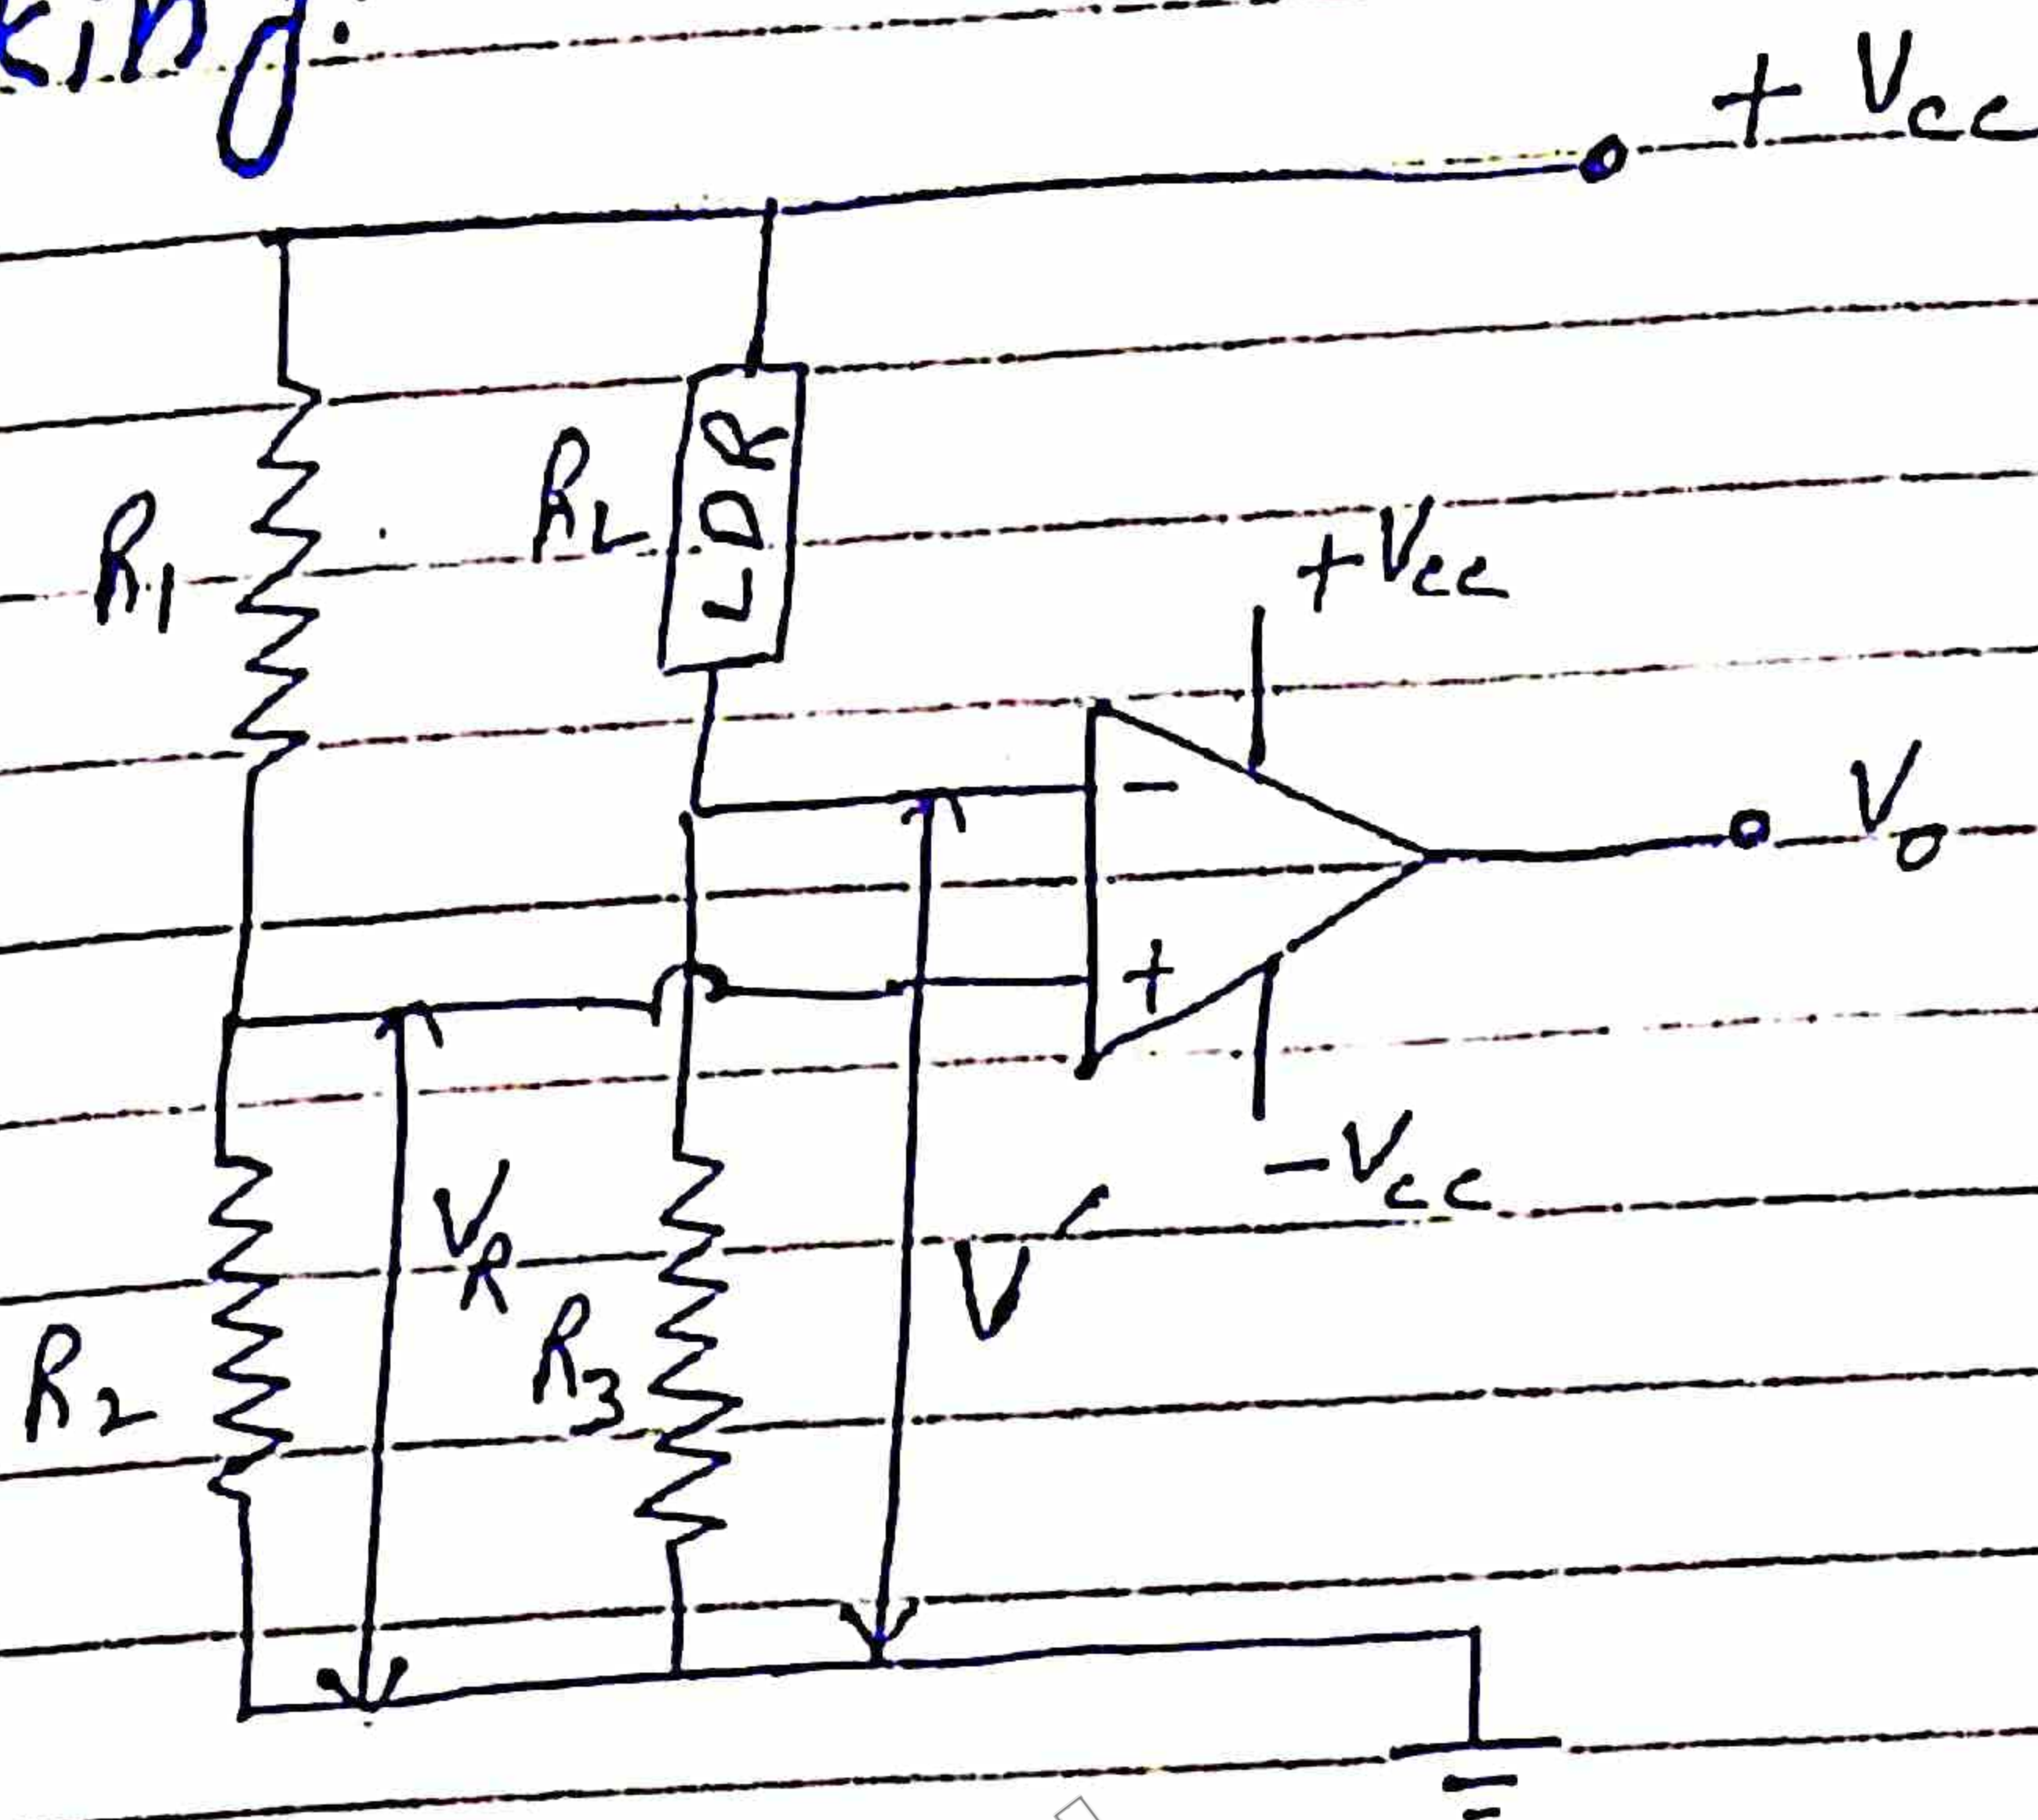 king:
+ Vcc
R1
RL
LDR
+Vcc
-
Vo
+
-Vcc
VR
V'
R2
R3